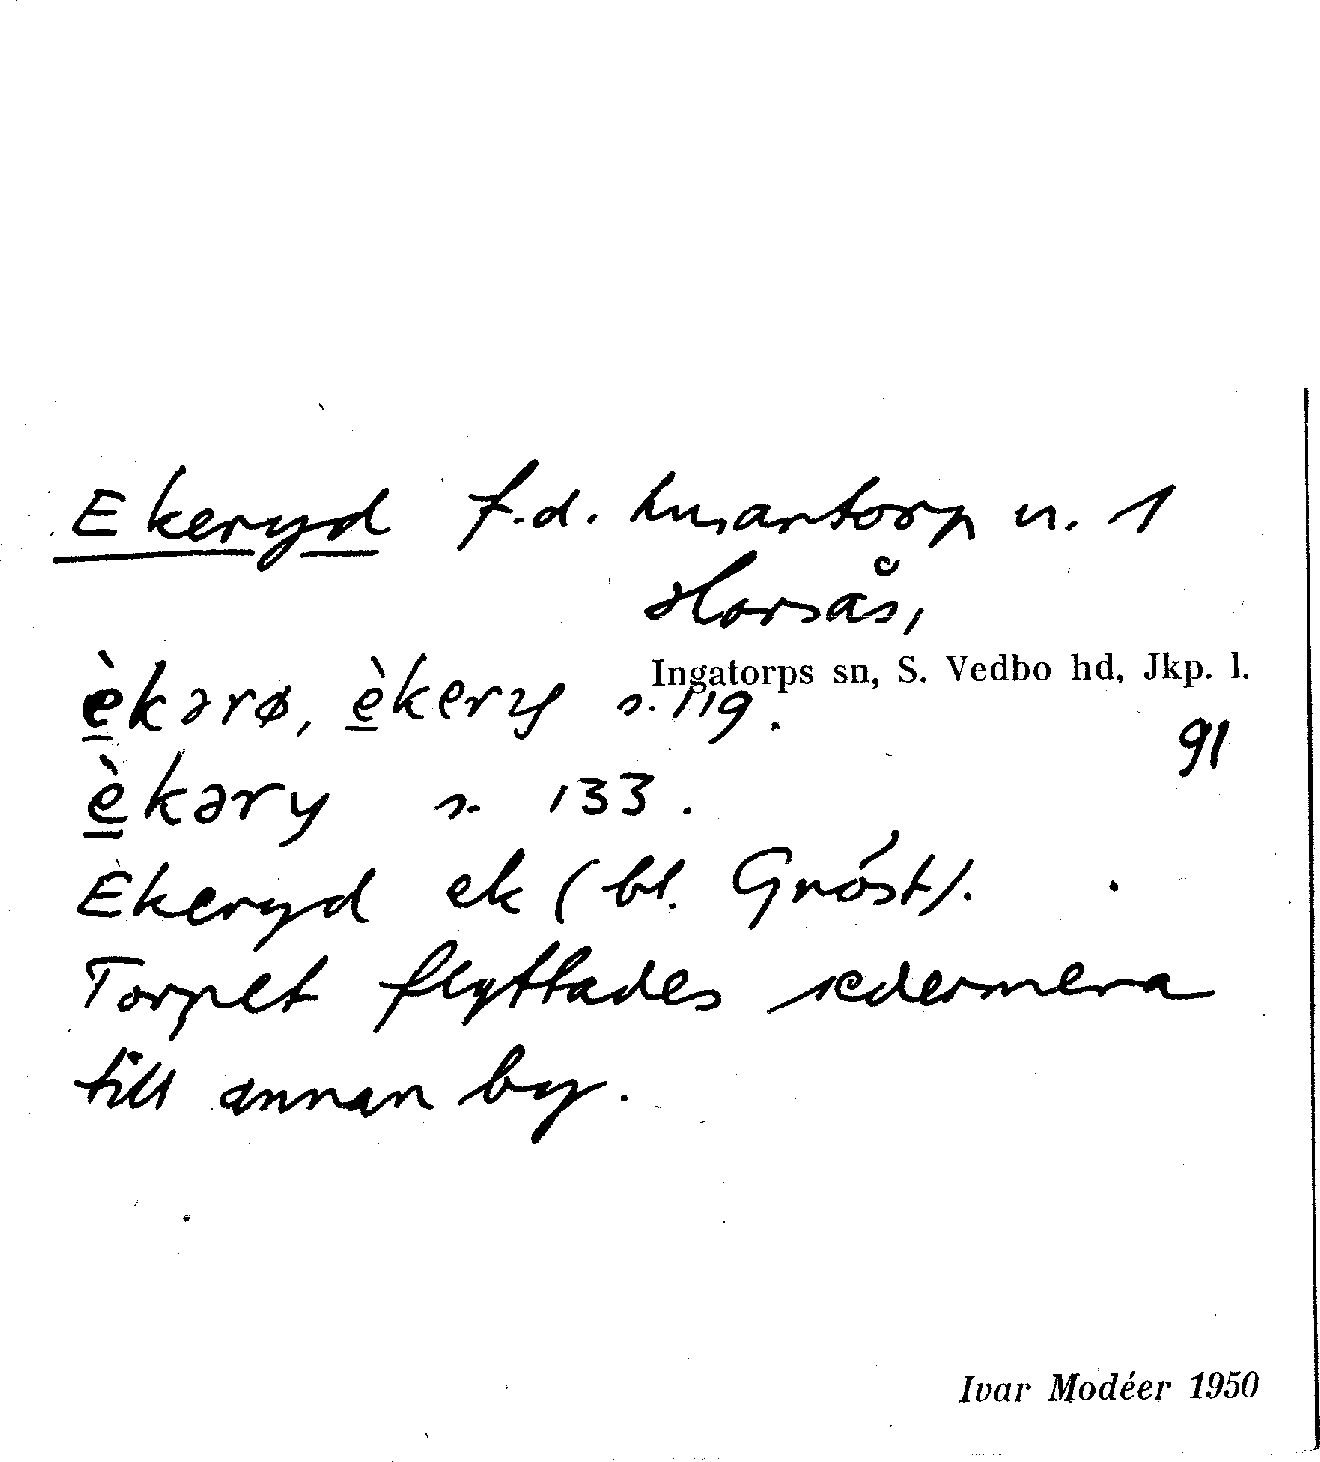 Ekeryd f.d. husartorp u. 1
Horsås,
Ingatorps sn, S. Vedbo hd, Jkp. l.
èkərø, èkery s. 119.
91
èkəry s. 133.
Ekeryd ek (bl. Gnöst).
Torpet flyttades sedermera
till annan by.
Ivar Modéer 1950